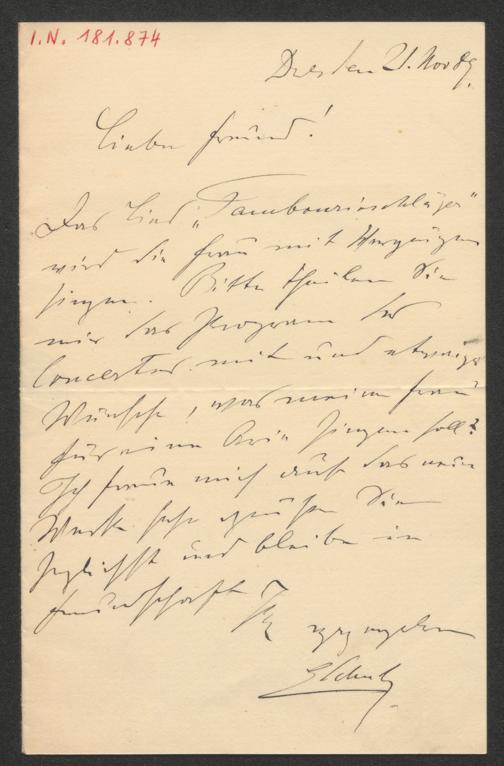 I.N. 181.874
Dresden 21. Nov 89.
Lieber Freund!
Das Lied „Tambourinschläger“
wird die Frau mit Vergnügen
singen. Bitte theilen Sie
mir das Program des
Concertes mit und etwaige
Wünsche, was meine Frau
für eine Arie singen soll?
Ich freue mich auf das neue
Werk sehr grüße Sie
herzlichst und bleibe in
Freundschaft Ihr
ergebener